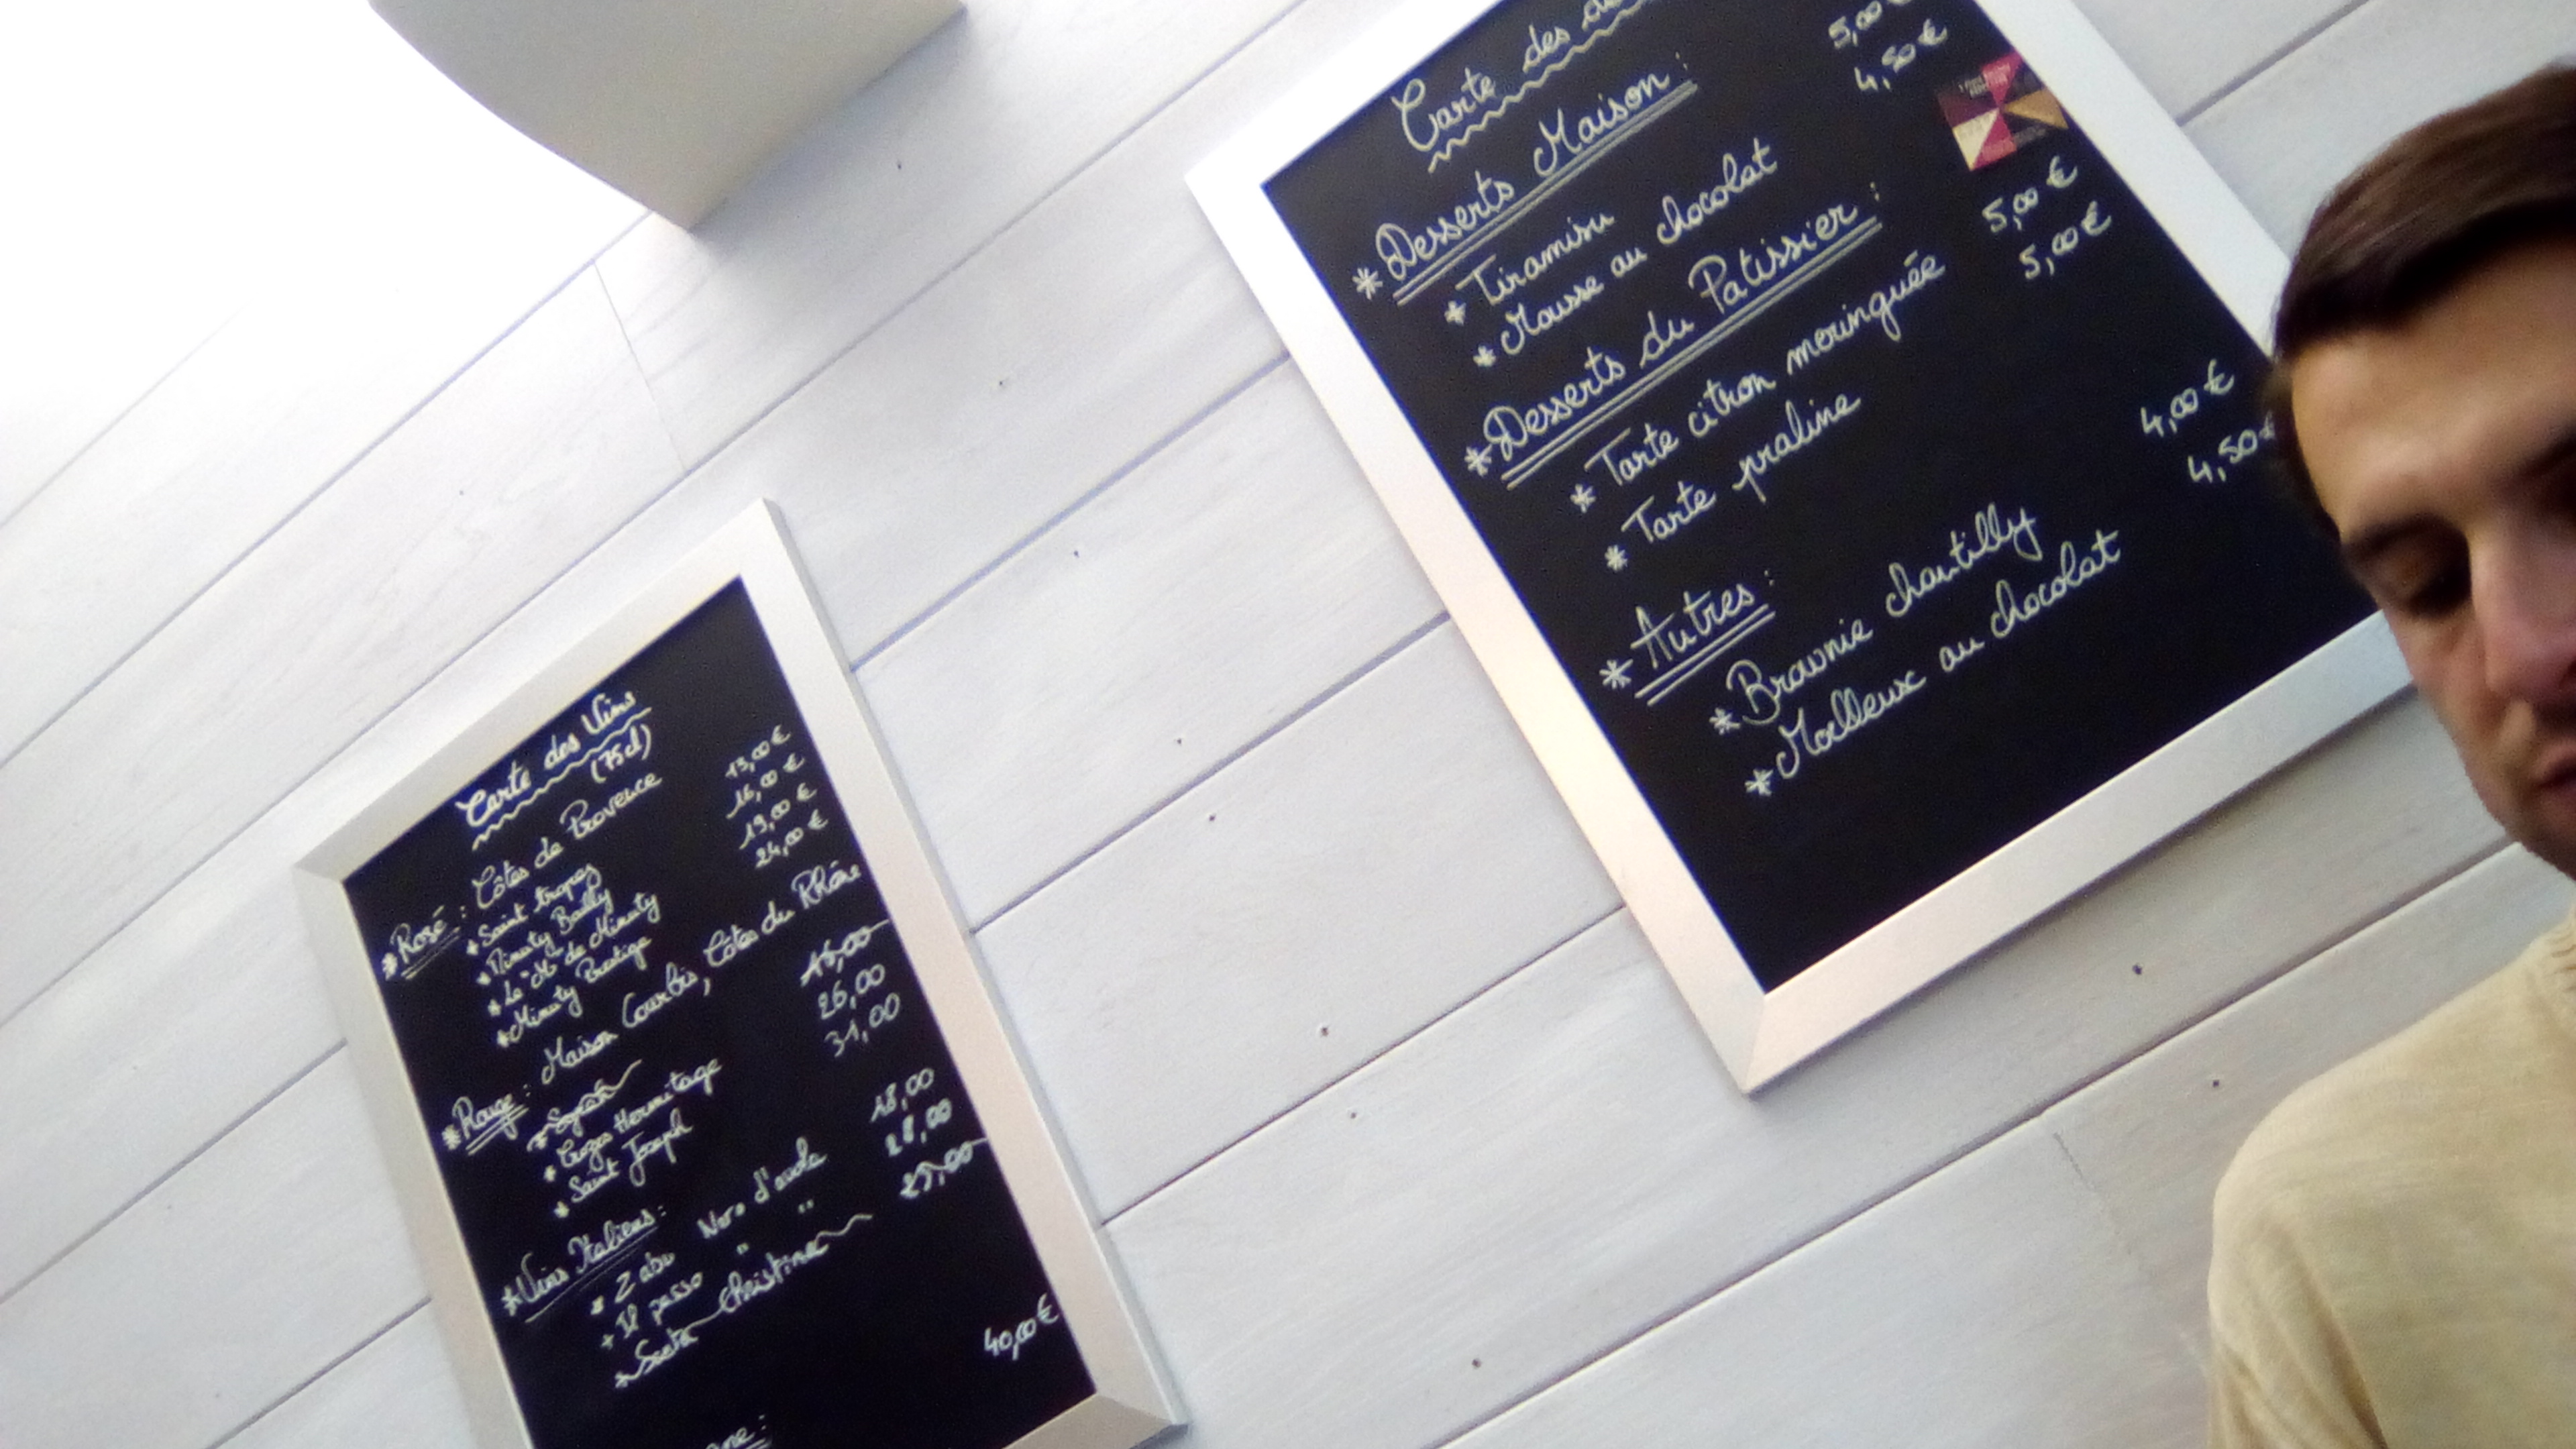 Carte des Vins
(75cl)
* Rosé : Côtes de Provence
* Saint tropez 13,00 €
* Minuty Bailly 16,00 €
* Le "M" de Minuty 19,00 €
* Minuty Prestige 24,00 €
* Rouge : Maison Courbis, Côtes du Rhône
15,00
* Crozes Hermitage 26,00
* Saint Joseph 31,00
* Vins Italiens :
* Zabu Nero d'avola 18,00
* Il passo " " 28,00
* Santa Christina 25,00
40,00 €
Carte des
* Desserts Maison :
* Tiramisu 5,00 €
* Mousse au chocolat 4,50 €
* Desserts du Patissier :
* Tarte citron meringuée 5,00 €
* Tarte praline 5,00 €
* Autres :
* Brownie chantilly 4,00 €
* Moelleux au chocolat 4,50 €